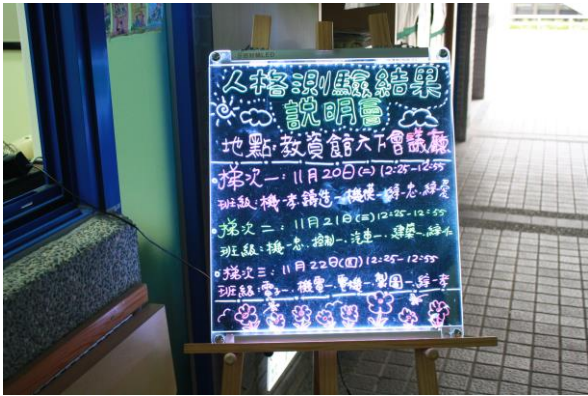 人格測驗結果
說明會
地點:教資館天下會議廳
梯次一:11月20日(二)12:25-12:55
班級:機一孝.鑄造一.機模一.綜一忠.綜一愛
梯次二:11月21日(三)12:25-12:55
班級:機一忠.控制一.汽車一.建築一.綜一仁
梯次三:11月22日(四)12:25-12:55
班級:電子一.機電一.電機一.製圖一.綜一孝